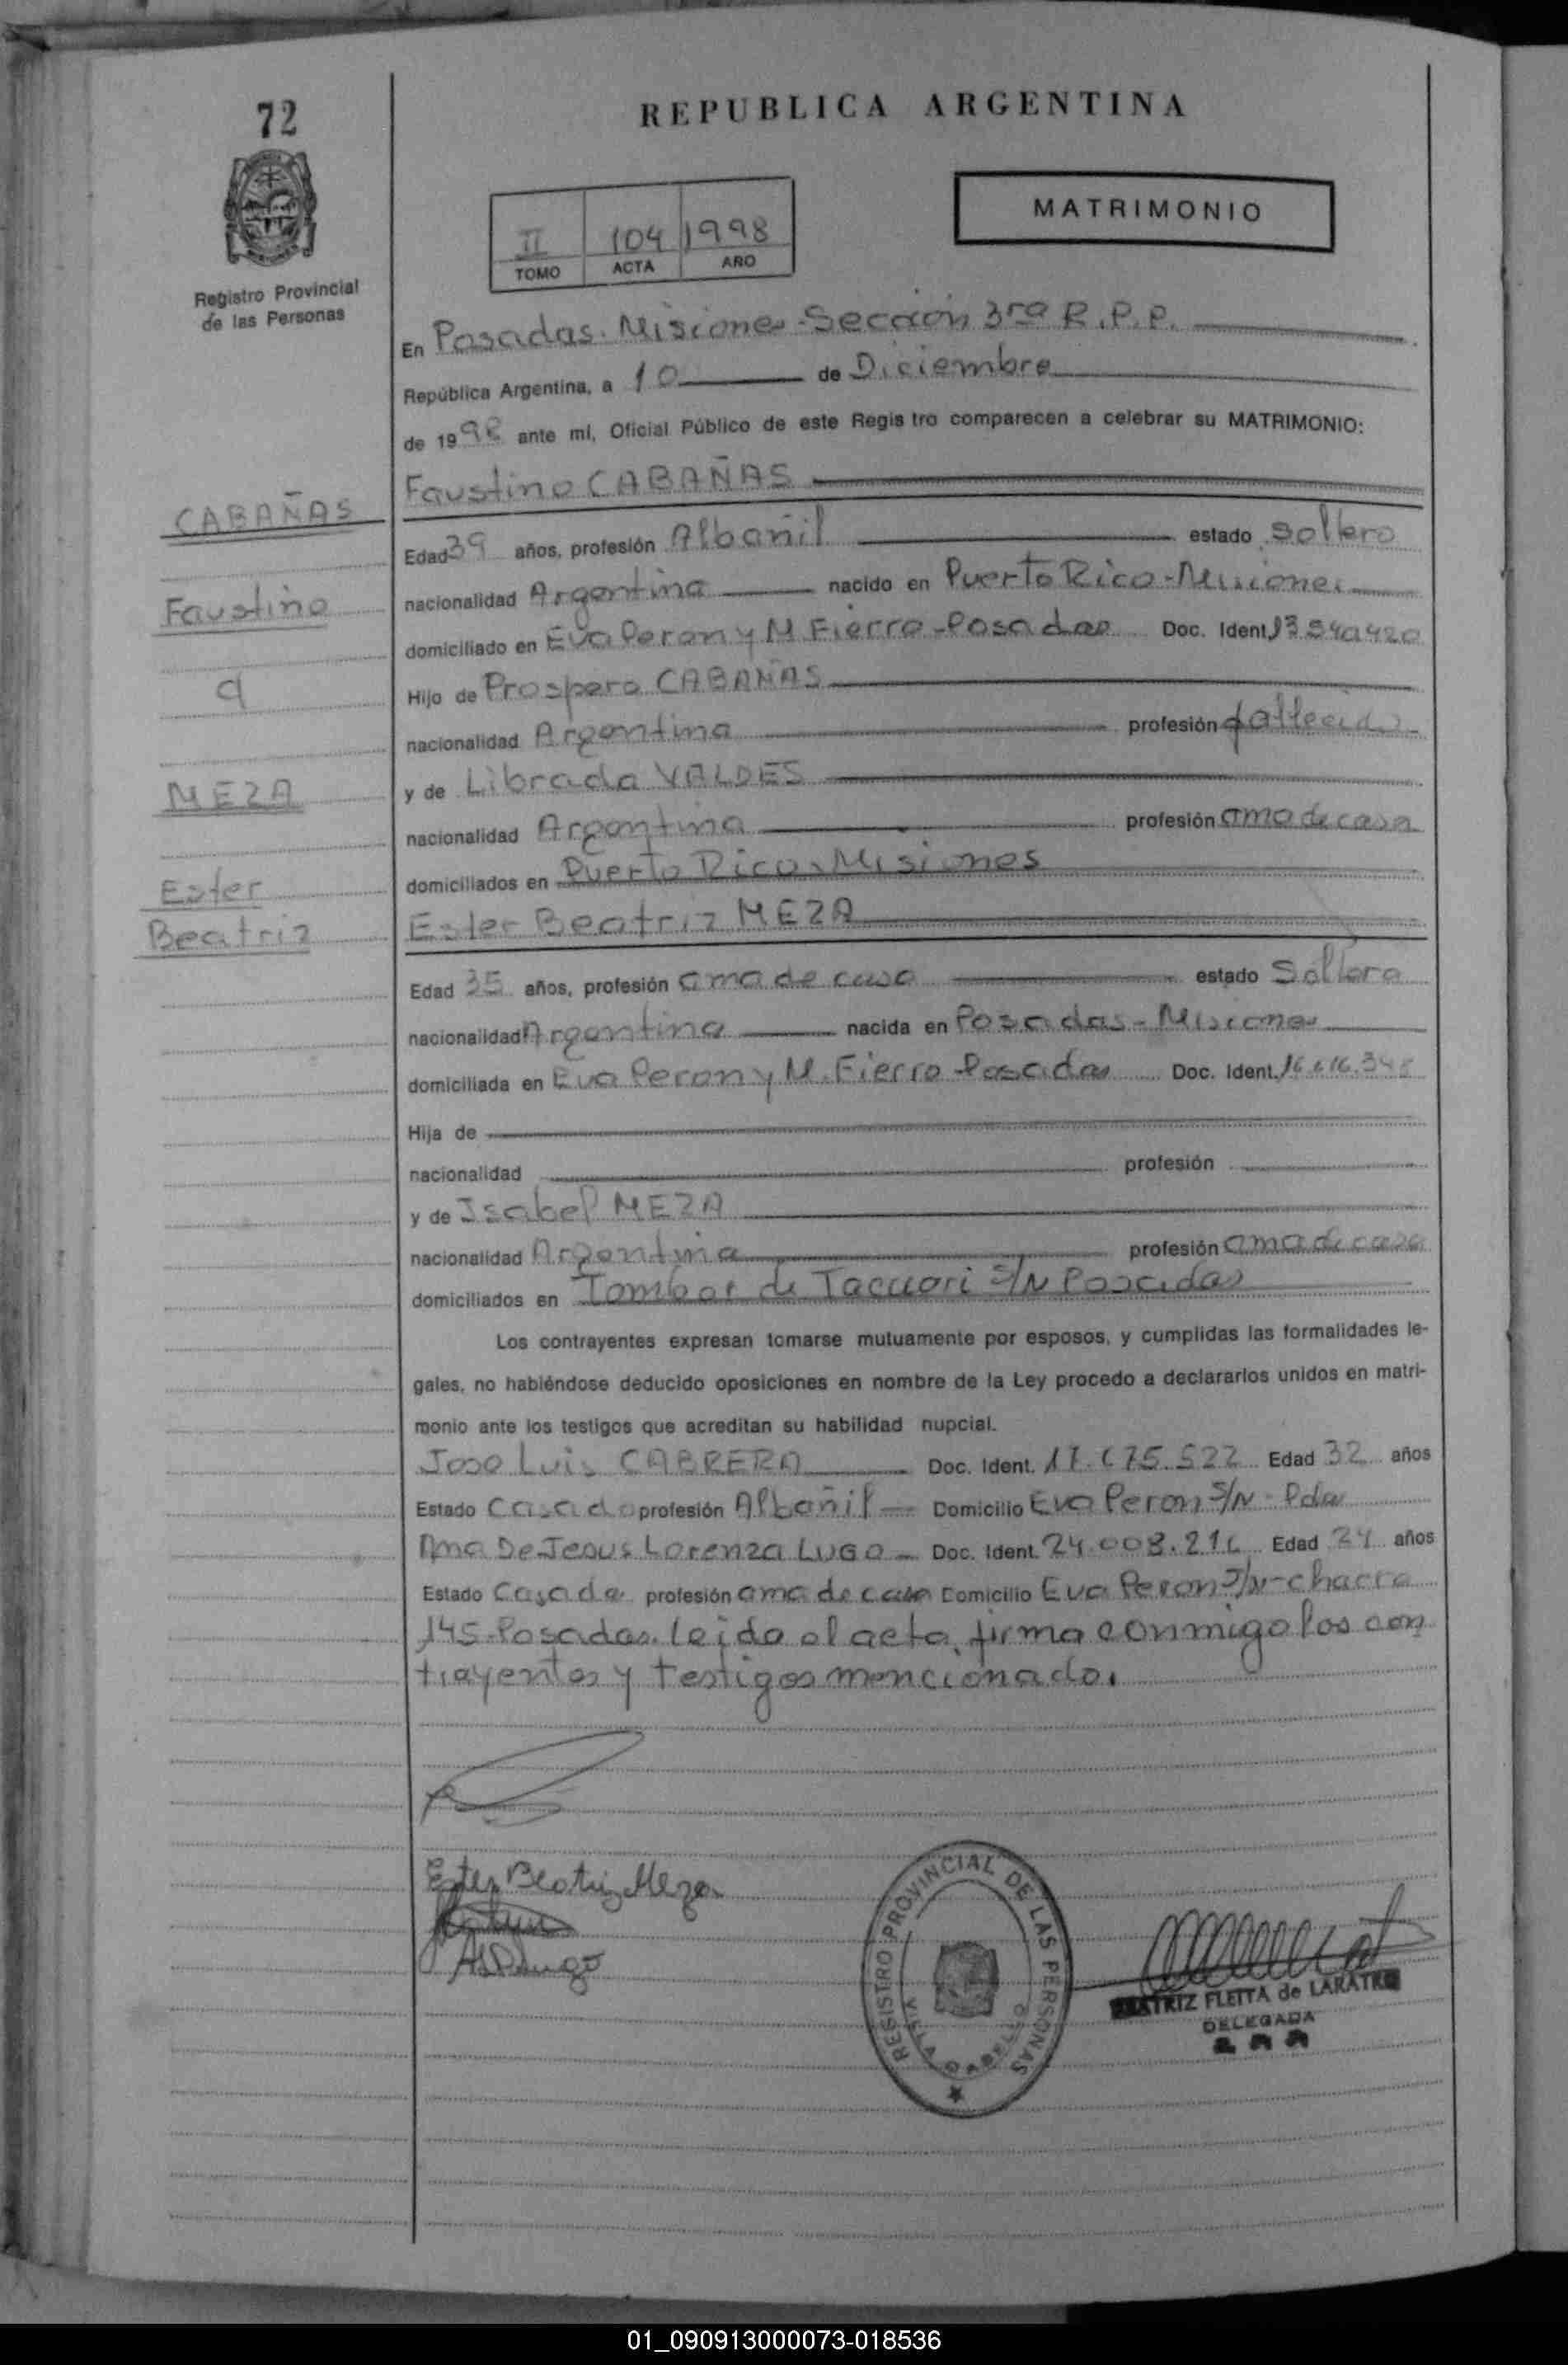 72
REPUBLICA ARGENTINA
MATRIMONIO
II 104 1998
TOMO ACTA AÑO
Registro Provincial
de las Personas
En Posadas. Misiones-Sección 3ra R.P.P.
República Argentina, a 10 de Diciembre
de 1998 ante mí, Oficial Público de este Regis tro comparecen a celebrar su MATRIMONIO:
Faustino CABAÑAS
CABAÑAS
Edad 39 años, profesión Albañil estado soltero
Faustino
nacionalidad Argentina nacido en Puerto Rico-Misiones
domiciliado en Eva Peron y M Fierro-Posadas Doc. Ident.
Hijo de Prospero CABAÑAS
nacionalidad Argentina profesión fallecido
MEZA
y de Librada VALDES
nacionalidad Argentina profesión ama de casa
domiciliados en Puerto Rico-Misiones
Ester
Beatriz
Ester Beatriz MEZA
Edad 35 años, profesión ama de casa estado Soltera
nacionalidad Argentina nacida en Posadas-Misiones
domiciliada en Eva Peron y M. Fierro-Posadas Doc. Ident.
Hija de
nacionalidad profesión
y de Isabel MEZA
nacionalidad Argentina profesión ama de casa
domiciliados en Tambor de Tacuari S/N Posadas
Los contrayentes expresan tomarse mutuamente por esposos, y cumplidas las formalidades le-
gales, no habiéndose deducido oposiciones en nombre de la Ley procedo a declararlos unidos en matri-
monio ante los testigos que acreditan su habilidad nupcial.
Jose Luis CABRERA Doc. Ident. 17.675.522 Edad 32 años
Estado Casado profesión Albañil Domicilio Eva Peron S/N-Pdas
Ana De Jesus Lorenza LUGO Doc. Ident. 24.008.216 Edad 24 años
Estado Casada profesión ama de casa Domicilio Eva Peron S/N-chacra
145-Posadas. leida el acta, firma conmigo los con
trayentes y testigos mencionados.
Ester Beatriz Meza
REGISTRO PROVINCIAL DE LAS PERSONAS
VILLA CABELLO
BEATRIZ FLEITA de LARATRO
DELEGADA
01_090913000073-018536